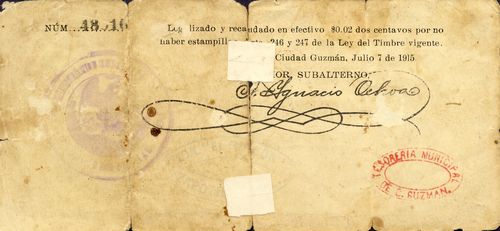 NÚM.
lizado y recaudado en efectivo $0.02 dos centavos por no
haber estampillas 246 y 247 de la Ley del Timbre vigente.
Ciudad Guzmán, Julio 7 de 1915
OR, SUBALTERNO
Ignacio Ochoa
TESORERIA MUNICIPAL
DE C. GUZMAN.